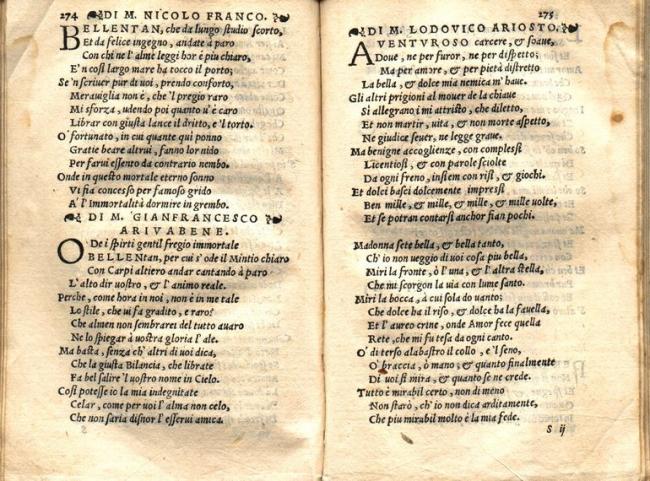 274 DI M. NICOLO FRANCO.
BELLENTAN, che da lungo studio scorto,
Et da felice ingegno, andate à paro
Con chi ne l'alme leggi hor è piu chiaro,
E'n cosi largo mare ha tocco il porto;
Se'n scriuer pur di uoi, prendo conforto,
Merauiglia non è, che'l pregio raro
Mi sforza, udendo poi quanto u'è caro
Librar con giusta lance il dritto, e'l torto.
O' fortunato, in cui quante qui ponno
Gratie beare altrui, fanno lor nido
Per farui essento da contrario nembo.
Onde in questo mortale eterno sonno
Vi fia concesso per famoso grido
A' l'Immortalità dormire in grembo.
DI M. GIANFRANCESCO
ARIVABENE.
O De i spirti gentil fregio immortale
BELLENtan, per cui s'ode il Mintio chiaro
Con Carpi altiero andar cantando à paro
L'alto dir uostro, & l'animo reale.
Perche, come hora in noi, non è in me tale
Lo stile, che ui fa gradito, e raro?
Che almen non sembrarei del tutto auaro
Ne lo spiegar à uostra gloria l'ale.
Ma basta, senza ch'altri di uoi dica,
Che la giusta Bilancia, che librate
Fa bel salire'l uostro nome in Cielo.
Cosi potesse io la mia indegnitate
Celar, come per uoi l'alma non celo,
Che non saria disnor l'esserui amica.
275
DI M. LODOVICO ARIOSTO.
AVENTVROSO carcere, & soaue,
Doue, ne per furor, ne per dispetto;
Ma per amore, & per pietà distretto
La bella, & dolce mia nemica m'haue.
Gli altri prigioni al mouer de la chiaue
Si allegrano; i mi attristo, che diletto,
Et non martir, uita, & non morte aspetto,
Ne giudice seuer, ne legge graue.
Ma benigne accoglienze, con complessi
Licentiosi, & con parole sciolte
Da ogni freno, insiem con risi, & giochi.
Et dolci basci dolcemente impressi
Ben mille, & mille, & mille, & mille uolte,
Et se potran contarsi anchor fian pochi.
Madonna sete bella, & bella tanto,
Ch'io non ueggio di uoi cosa piu bella,
Miri la fronte, ò l'una, & l'altra stella,
Che mi scorgon la uia con lume santo.
Miri la bocca, à cui sola do uanto;
Che dolce ha il riso, & dolce ha la fauella,
Et l'aureo crine, onde Amor fece quella
Rete, che mi fu tesa da ogni canto.
O' di terso alabastro il collo, e'l seno,
O' braccia, ò mano; & quanto finalmente
Di uoi si mira, & quanto se ne crede.
Tutto è mirabil certo, non di meno
Non starò, ch'io non dica arditamente,
Che piu mirabil molto è la mia fede.
S ij